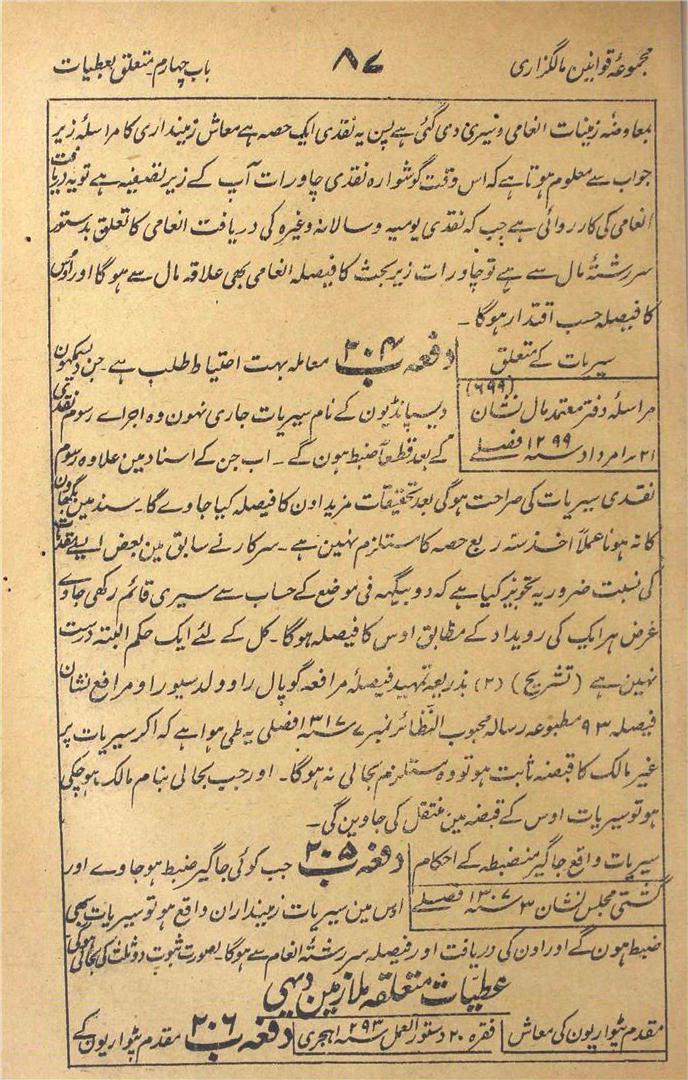 مجموعۂ قوانین مالگزاری ۸۷ باب چہارم۔ متعلق بعطیات
بمعاوضہ زمینات انعامی و سیری دی گئی ہے پس یہ نقدی ایک حصہ ہے معاش زمینداری کا مراسلۂ زیر
جواب سے معلوم ہوتا ہے کہ اس وقت گوشوارہ نقدی چاورات آپ کے زیر تصفیہ ہے تو یہ دریافت
انعامی کی کارروائی ہے جب کہ نقدی یومیہ و سالانہ وغیرہ کی دریافت انعامی کا تعلق بدستور
سررشتۂ مال سے ہے تو چاورات زیر بحث کا فیصلہ انعامی بھی علاقہ مال سے ہوگا اور اوس
کا فیصلہ حسب اقتدار ہوگا۔
سیریات کے متعلق
مراسلۂ دفتر معتمد مال نشان (۶۹۹)
۲۱؍ امرداد سنہ ۱۲۹۹ فصلی
دفعہ ب ۲۰۴ معاملہ بہت احتیاط طلب ہے۔ جن دیسمکھون
دیسپانڈیون کے نام سیریات جاری نہون وہ اجراے رسوم نقدی
کے بعد قطعاً ضبط ہون گے۔ اب جن کے اسناد مین علاوہ رسوم
نقدی سیریات کی صراحت ہوگی بعد تحقیقات مزید اون کا فیصلہ کیا جاوے گا۔ سند مین بیگھاون
کا نہ ہونا عملاً اخذ سہ ربع حصہ کا مستلزم نہین ہے۔ سرکار نے سابق مین بعض ایسے مقدمات
کی نسبت ضرور یہ تجویز کیا ہے کہ دو بیگہہ فی موضع کے حساب سے سیری قائم رکھی جاوے
غرض ہر ایک کی رویداد کے مطابق اوس کا فیصلہ ہوگا۔ کل کے لئے ایک حکم البتہ درست
نہین ہے (تشریح) (۲) بذریعہ تمہید فیصلۂ مرافعہ گوپال راو ولد سیو راو مرافع نشان
فیصلہ ۹۳ مطبوعہ رسالہ محبوب النظائر نمبر ۷ سنہ ۱۳۱۷ فصلی یہ طی ہوا ہے کہ اگر سیریات پر
غیر مالک کا قبضہ ثابت ہو تو وہ مستلزم بحالی نہ ہوگا۔ اور جب بحالی بنام مالک ہوچکی
ہو تو سیریات اوس کے قبضہ مین منتقل کی جاوین گی۔
سیریات واقع جاگیر منضبطہ کے احکام
گشتی مجلس نشان ۳ سنہ ۱۳۰۷ فصلی
دفعہ ب ۲۰۵ جب کوئی جاگیر ضبط ہوجاوے اور
اوس مین سیریات زمینداران واقع ہو تو سیریات بھی
ضبط ہون گے اور اون کی دریافت اور فیصلہ سررشتۂ انعام سے ہوگا۔ بصورت ثبوت دو ثلث کی بحالی ہوگی
عطیات متعلقہ ملازمین دیہی
مقدم پٹواریون کی معاش فقرہ ۲۰ دستور العمل سنہ ۱۲۹۳ ہجری دفعہ ب ۲۰۶ مقدم پٹواریون کے